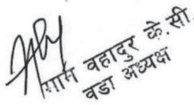 वहादुर के.सी.
वडा अध्यक्ष